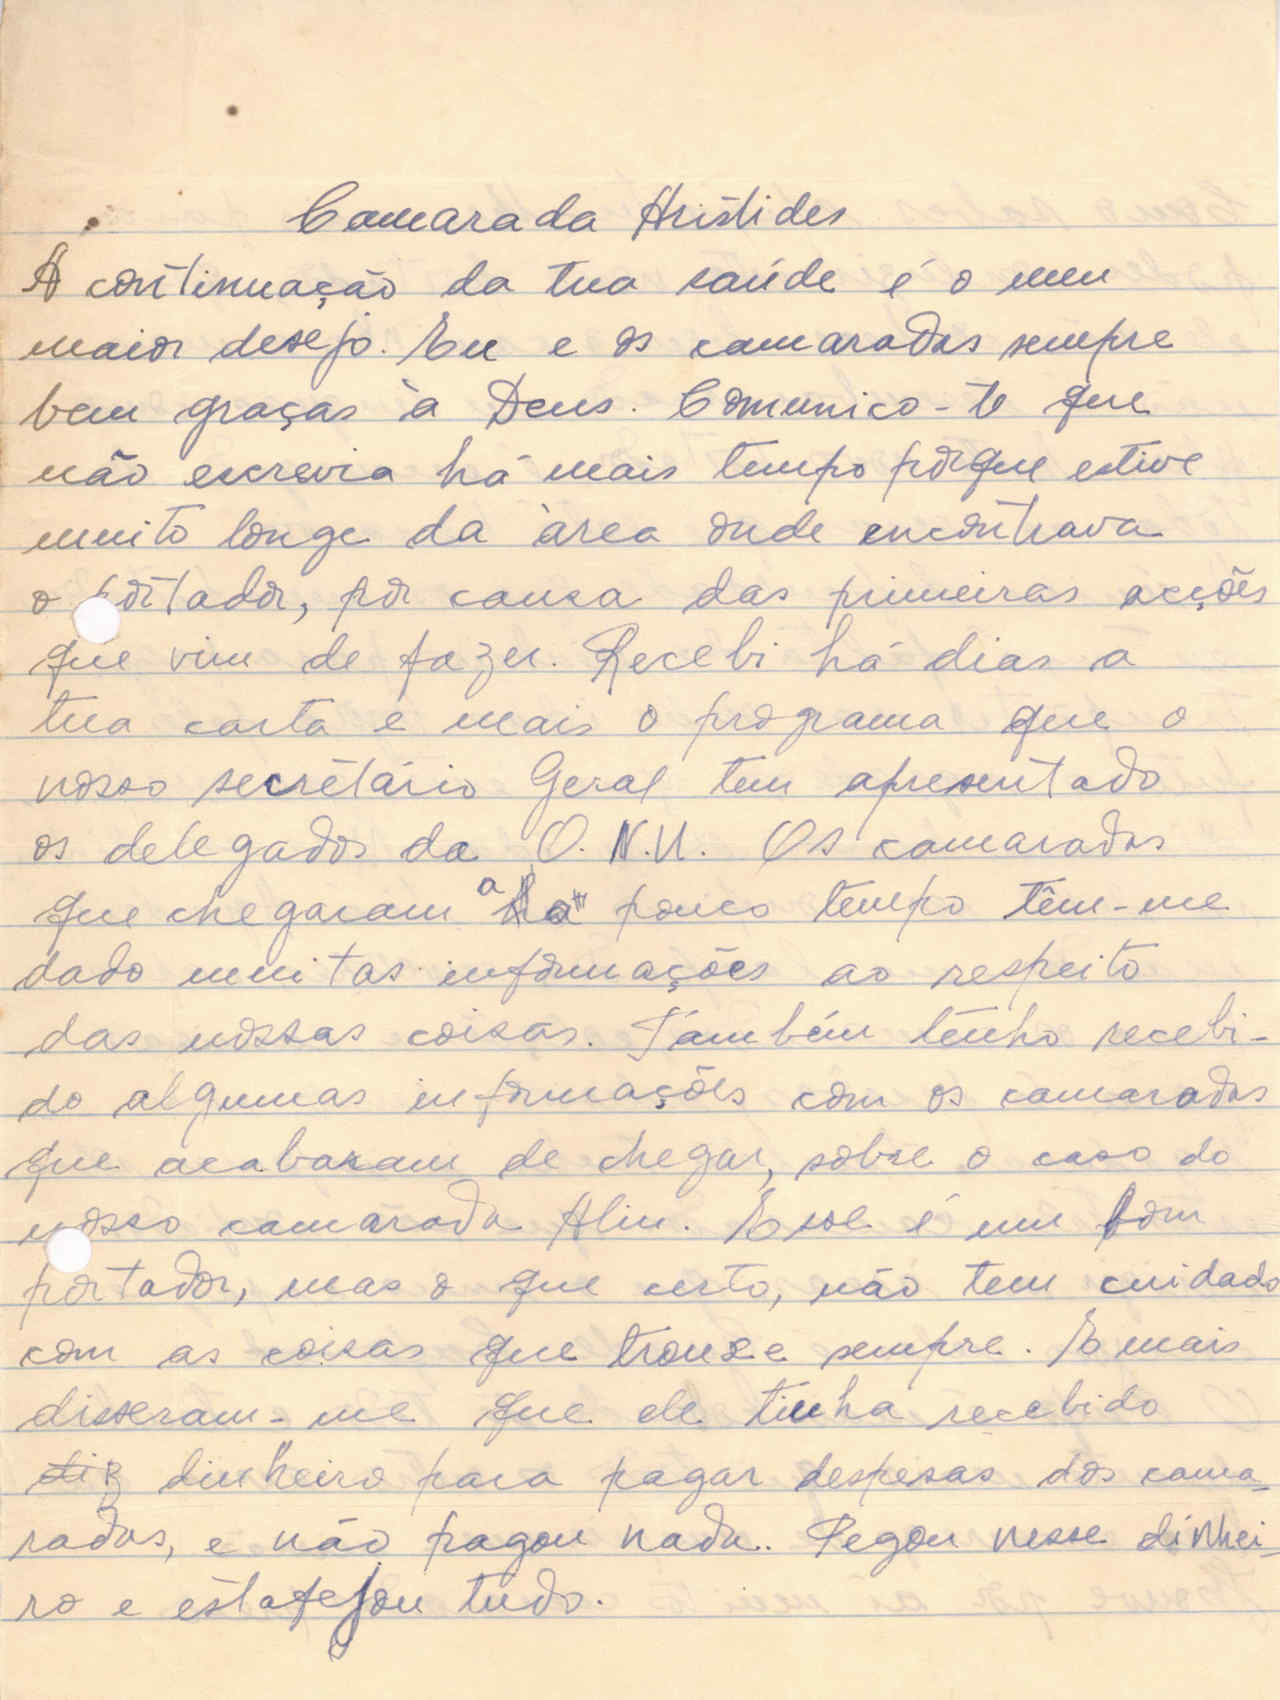 Camarada Aristides
A continuação da tua saúde é o meu
maior desejo. Eu e os camaradas sempre
bem graças à Deus. Comunico-te que
não escrevia há mais tempo porque estive
muito longe da àrea onde encontrava
o portador, por causa das primeiras acções
que vim de fazer. Recebi há dias a
tua carta e mais o programa que o
nosso secretário Geral tem apresentado
os delegados da O.N.U. Os camaradas
que chegaram a pouco tempo têm-me
dado muitas informações ao respeito
das nossas coisas. Também tenho recebi-
do algumas informações com os camaradas
que acabaram de chegar, sobre o caso do
nosso camarada Alin. Esse é um bom
portador, mas o que certo, não tem cuidado
com as coisas que trouxe sempre. E mais
disseram-me que ele tinha recebido
diz dinheiro para pagar despesas dos cama-
radas, e não pagou nada. Pegou nesse dinhei-
ro e tudo.